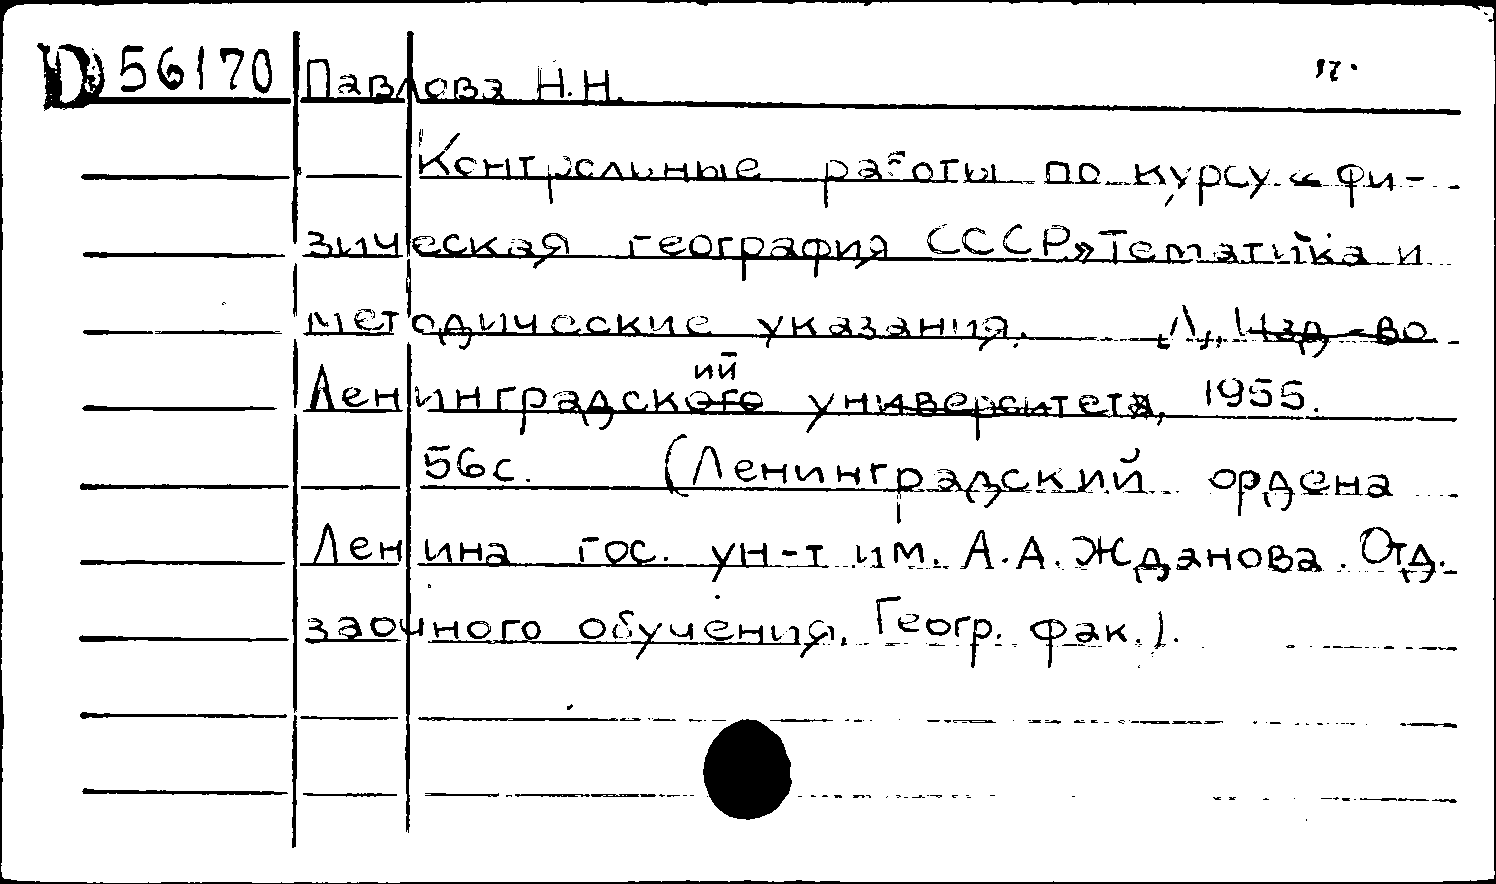 D 56170 Павлова Н.Н.
Контрольные работы по курсу „Фи-
зическая география СССР» Тематика и
методические указания. Л., Изд-во
ий
Ленинградского университета, 1955.
56 с. (Ленинградский ордена
Ленина гос. ун-т им. А.А. Жданова. Отд.
заочного обучения. Геогр. фак.).